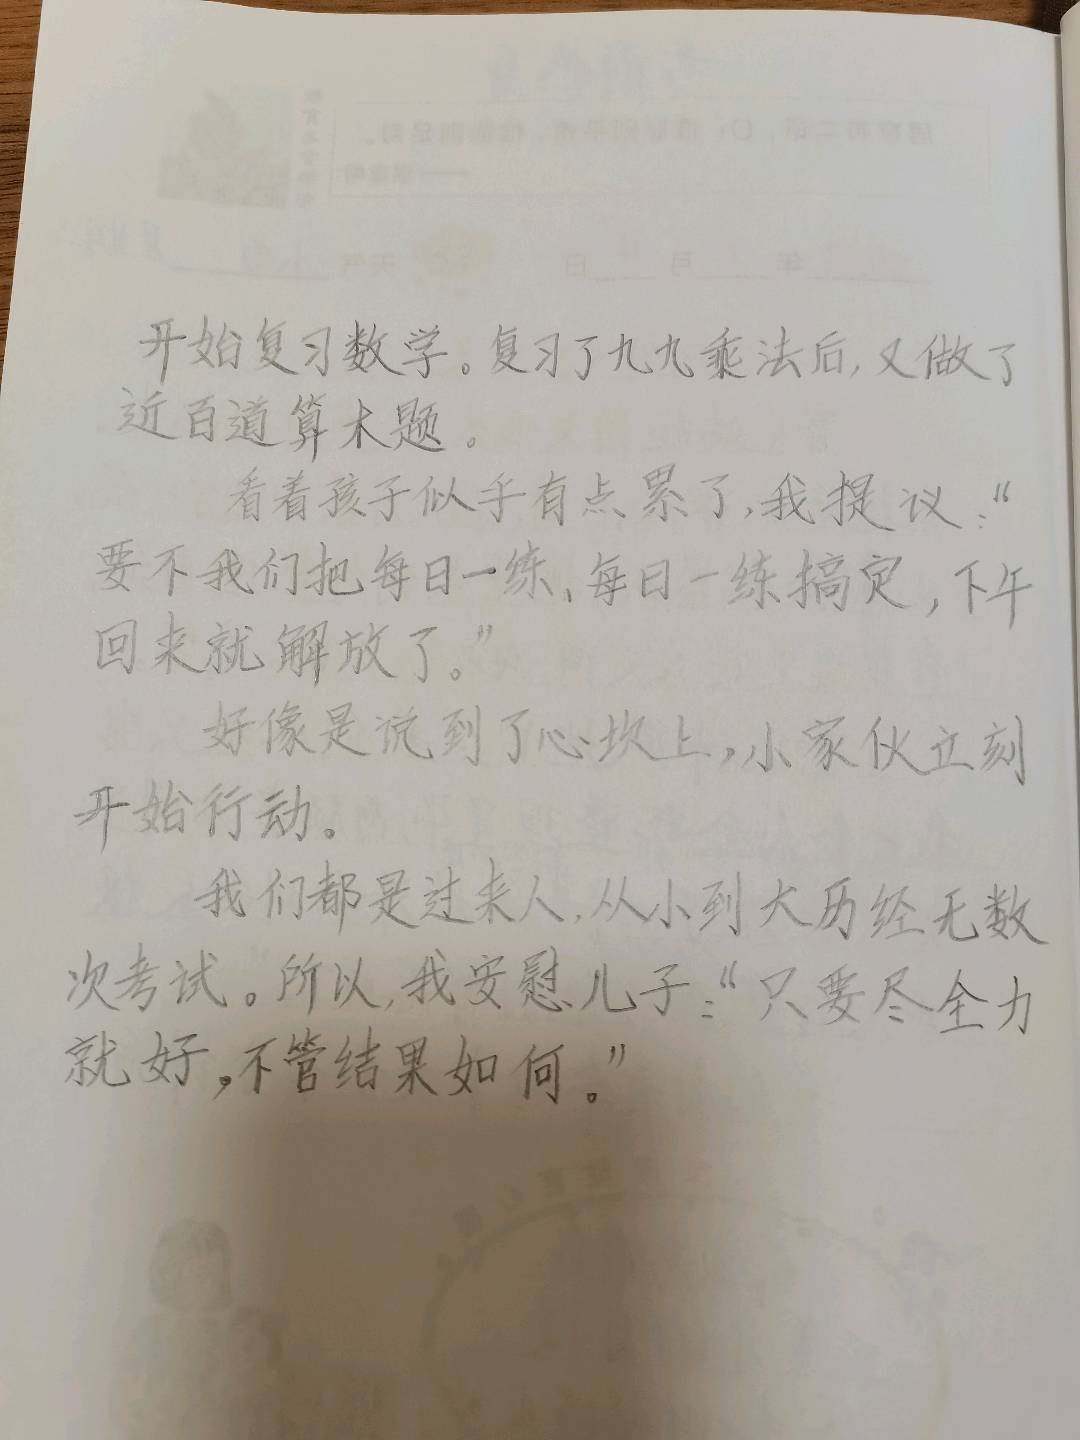 开始复习数学。复习了九九乘法后,又做了
近百道算术题。
看着孩子似乎有点累了,我提议:“
要不我们把每日一练、每日一练搞定,下午
回来就解放了。”
好像是说到了心坎上,小家伙立刻
开始行动。
我们都是过来人,从小到大历经无数
次考试。所以,我安慰儿子:“只要尽全力
就好,不管结果如何。”